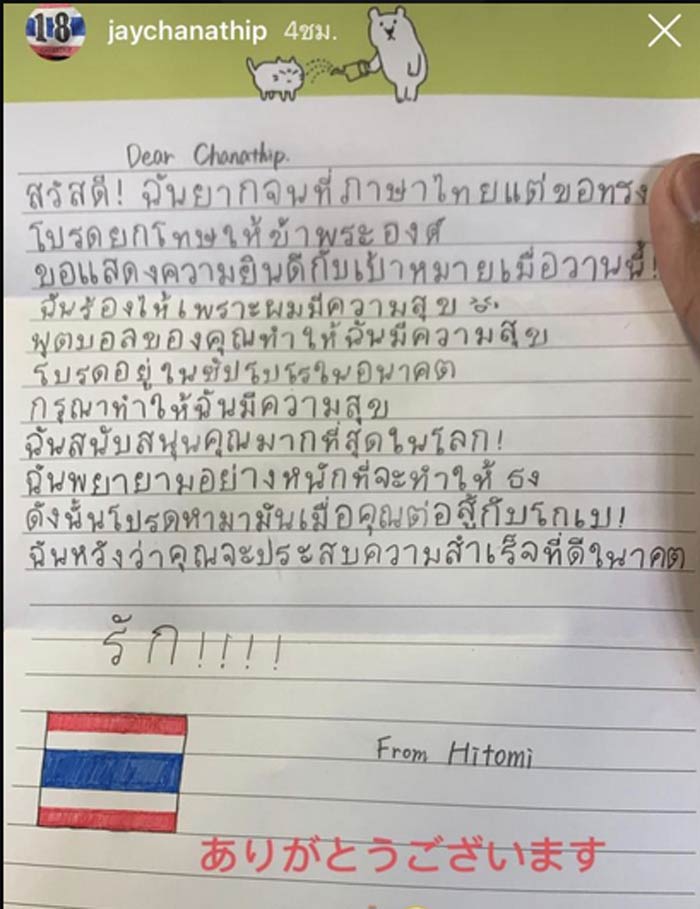 18
jaychanathip 4ชม.
Dear Chanathip.
สวัสดี! ฉันยากจนที่ภาษาไทยแต่ขอทรง
โปรดยกโทษให้ข้าพระองค์
ขอแสดงความยินดีกับเป้าหมายเมื่อวานนี้!
ฉันร้องไห้เพราะผมมีความสุข
ฟุตบอลของคุณทำให้ฉันมีความสุข
โปรดอยู่ในซัปโปโรในอนาคต
กรุณาทำให้ฉันมีความสุข
ฉันสนับสนุนคุณมากที่สุดในโลก!
ฉันพยายามอย่างหนักที่จะทำให้ ธง
ดังนั้นโปรดหามามันเมื่อคุณต่อสู้กับโกเบ!
ฉันหวังว่าคุณจะประสบความสำเร็จที่ดีในาคต
รัก!!!!
From Hitomi
ありがとうございます